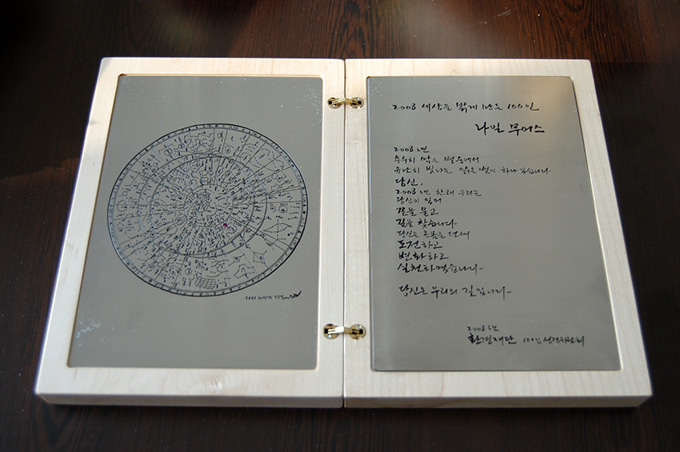 2008 세상을 밝게 만든 100인
나빌 무어스
2008년
무수히 많은 별들에서
유난히 빛나는 맑은 별이 하나 있습니다.
당신,
2008년 한해 우리는
당신이 있어
길을 묻고
길을 찾습니다
당신은
도전하고
변화하고
실천하였습니다-
당신은 우리의 길입니다-
2008년
환경재단 100인 선정위원회
2008